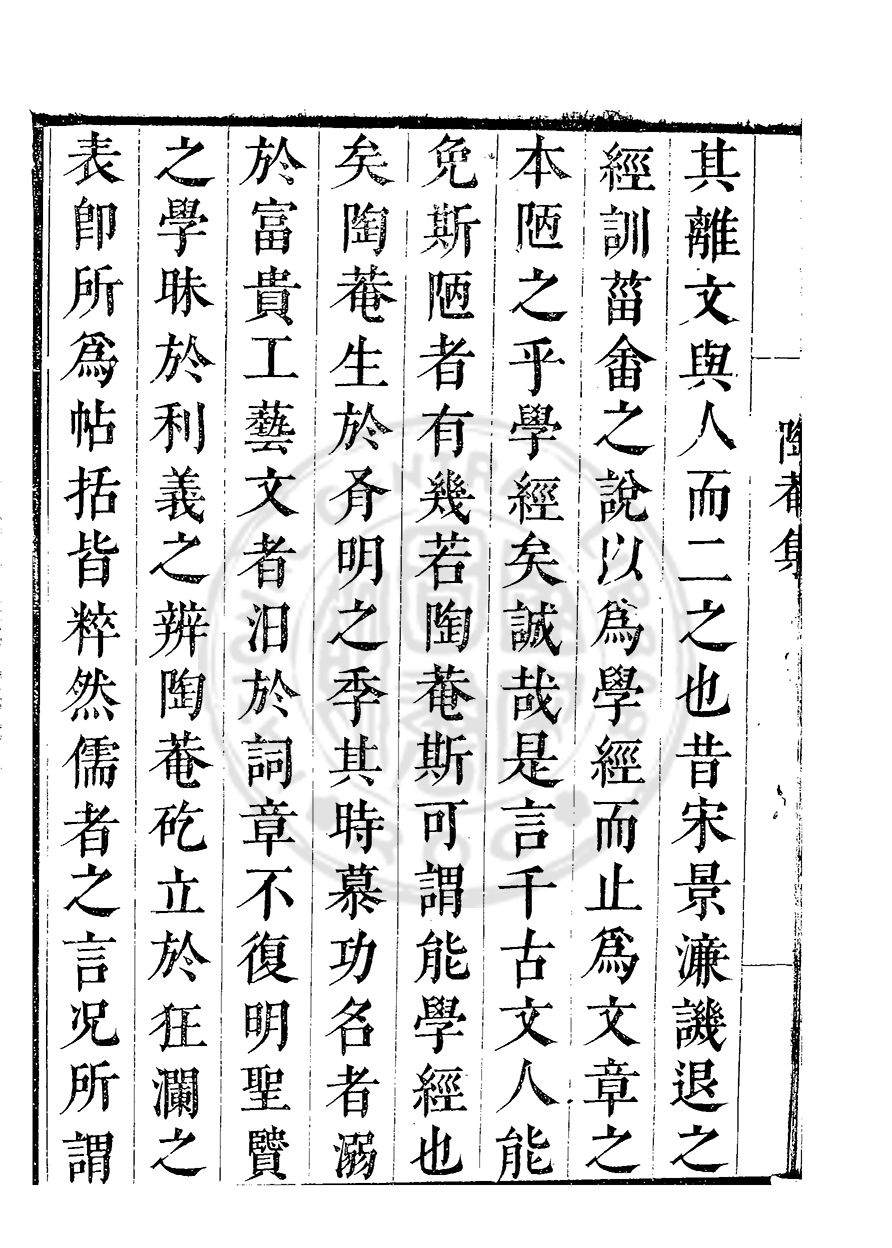 陶菴集
其離文與人而二之也昔宋景濂譏退之
經訓菑畬之說以爲學經而止爲文章之
本陋之乎學經矣誠哉是言千古文人能
免斯陋者有幾若陶菴斯可謂能學經也
矣陶菴生於有明之季其時慕功名者溺
於富貴工藝文者汨於詞章不復明聖賢
之學昧於利義之辨陶菴矻立於狂瀾之
表卽所爲帖括皆粹然儒者之言况所謂